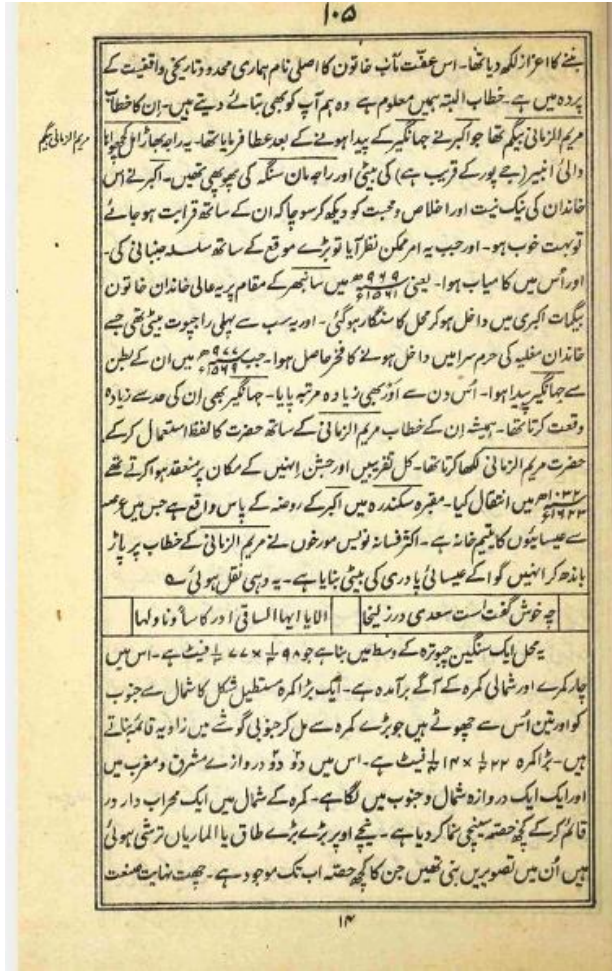 ۱۰۵
بننے کا اعزاز لکھ دیا تھا۔ اس عفّت مآب خاتون کا اصلی نام ہماری محدود تاریخی واقفیت کے
پردہ میں ہے۔ خطاب البتہ ہمیں معلوم ہے وہ ہم آپ کو بھی بتائے دیتے ہیں۔ اِن کا خطاب
مریم الزمانی بیگم تھا جو اکبر نے جہانگیر کے پیدا ہونے کے بعد عطا فرمایا تھا۔ یہ راجہ بھاڑا مل کچھواہا
مریم الزمانی بیگم
والیٔ انبیر (جے پور کے قریب ہے) کی بیٹی اور راجہ مان سنگہ کی پھوپھی تھیں۔ اکبر نے اس
خاندان کی نیک نیت اور اخلاص و محبت کو دیکھ کر سوچا کہ ان کے ساتھ قرابت ہو جائے
تو بہت خوب ہو۔ اور جب یہ امر ممکن نظر آیا تو بڑے موقع کے ساتھ سلسلہ جنبانی کی۔
اور اُس میں کامیاب ہوا۔ یعنی ۹۶۹ھ ۱۵۶۱ء میں سانبھر کے مقام پر یہ عالی خاندان خاتون
بیگمات اکبری میں داخل ہو کر محل کا سنگار ہو گئی۔ اور یہ سب سے پہلی راجپوت بیٹی تھی جسے
خاندان مغلیہ کی حرم سرا میں داخل ہونے کا فخر حاصل ہوا۔ جب ۹۷۷ھ ۱۵۶۹ء میں ان کے بطن
سے جہانگیر پیدا ہوا۔ اُس دن سے اَوْر بھی زیادہ مرتبہ پایا۔ جہانگیر بھی اِن کی حد سے زیادہ
وقعت کرتا تھا۔ ہمیشہ اِن کے خطاب مریم الزمانی کے ساتھ حضرت کا لفظ استعمال کر کے
حضرت مریم الزمانی لکھا کرتا تھا۔ کل تقریبیں اور جشن اِنہیں کے مکان پر منعقد ہوا کرتے تھے
۱۰۳۲ھ ۱۶۲۳ء میں انتقال کیا۔ مقبرہ سکندرہ میں اکبر کے روضہ کے پاس واقع ہے جس میں عرصہ
سے عیسائیوں کا یتیم خانہ ہے۔ اکثر فسانہ نویس مورخوں نے مریم الزمانی کے خطاب پر پاڑ
باندھ کر انہیں گوا کے عیسائی پادری کی بیٹی بنایا ہے۔ یہ وہی نقل ہوئی ؎
چہ خوش گفت است سعدی در زلیخا الا یا ایہا الساقی ادر کاساً و ناولہا
یہ محل ایک سنگین چبوترہ کے وسط میں بنا ہے جو فیٹ ہے۔ اس میں
چار کمرے اور شمالی کمرہ کے آگے برآمدہ ہے۔ ایک بڑا کمرہ مستطیل شکل کا شمال سے جنوب
کو اور تین اُس سے چھوٹے ہیں جو بڑے کمرہ سے مل کر جنوبی گوشے میں زاویہ قائمہ بناتے
ہیں۔ بڑا کمرہ فیٹ ہے۔ اس میں دوؔ دوؔ دروازے مشرق و مغرب میں
اور ایک ایک دروازہ شمال و جنوب میں لگا ہے۔ کمرہ کے شمال میں ایک محراب دار در
قائم کر کے کچھ حصّہ سینچی نما کر دیا ہے۔ نیچے اوپر بڑے بڑے طاق یا الماریاں ترشی ہوئی
ہیں اُن میں تصویریں بنی تھیں جن کا کچھ حصّہ اب تک موجود ہے۔ چھت نہایت صنعت
۱۴